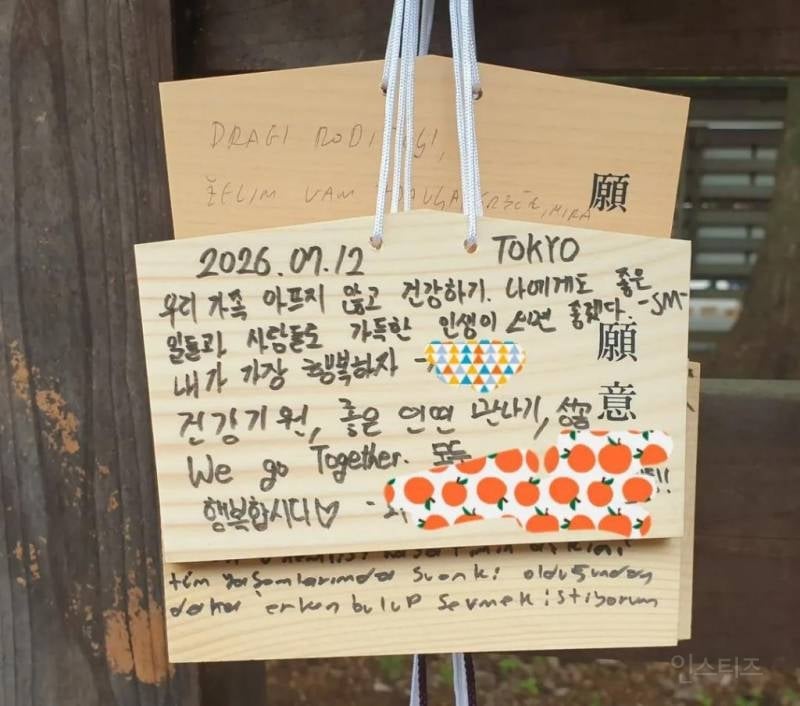 DRAGI RODITELJI,
ŽELIM VAM
願
2026.07.12 TOKYO
우리 가족 아프지 않고 건강하기. 나에게도 좋은
일들과 사람들도 가득한 인생이 되면 좋겠다. -SM-
내가 가장 행복하자 -
건강기원, 좋은 인연 만나기,
We go Together. 모두
행복합시다♡ -
願意
daha erken bulup sevmek istiyorum
인스티즈